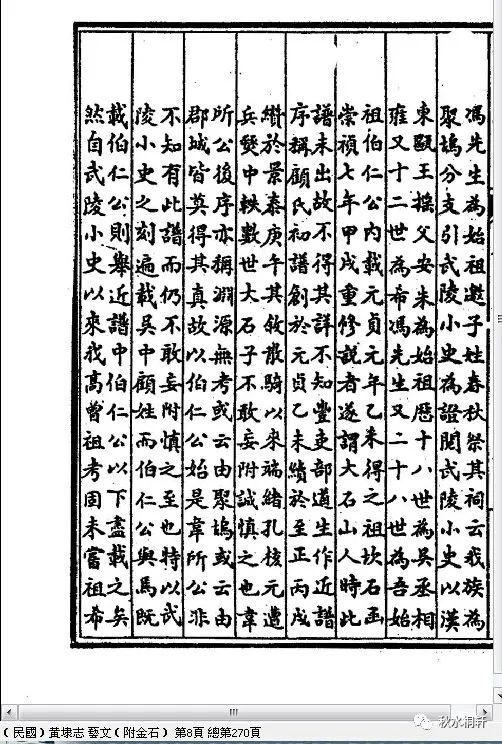 馮先生為始祖邀子姓春秋祭其祠云我族為
聚塢分支引武陵小史為證閱武陵小史以漢
東甌王搖父安朱為始祖歷十八世為吳丞相
雍又十二世為希馮先生又二十八世為吾始
祖伯仁公內載元貞元年乙未得之祖坎石函
崇禎七年甲戌重修說者遂謂大石山人時此
譜未出故不得其詳不知豐吏部道生作近譜
序稱顧氏初譜創於元貞乙未續於至正丙戌
纘於景泰庚午其敘散騎以來端緒孔核元遭
兵燹中軼數世大石子不敢妄附誠慎之也韋
所公後序亦稱淵源無考或云由聚塢或云由
郡城皆莫得其真故以伯仁公始是韋所公非
不知有此譜而仍不敢妄附慎之至也特以武
陵小史之刻遍載吳中顧姓而伯仁公與焉既
載伯仁公則舉近譜中伯仁公以下盡載之矣
然自武陵小史以來我高曾祖考固未嘗祖希
秋水桐軒
(民國)黃埭志 藝文(附金石) 第8頁 總第270頁